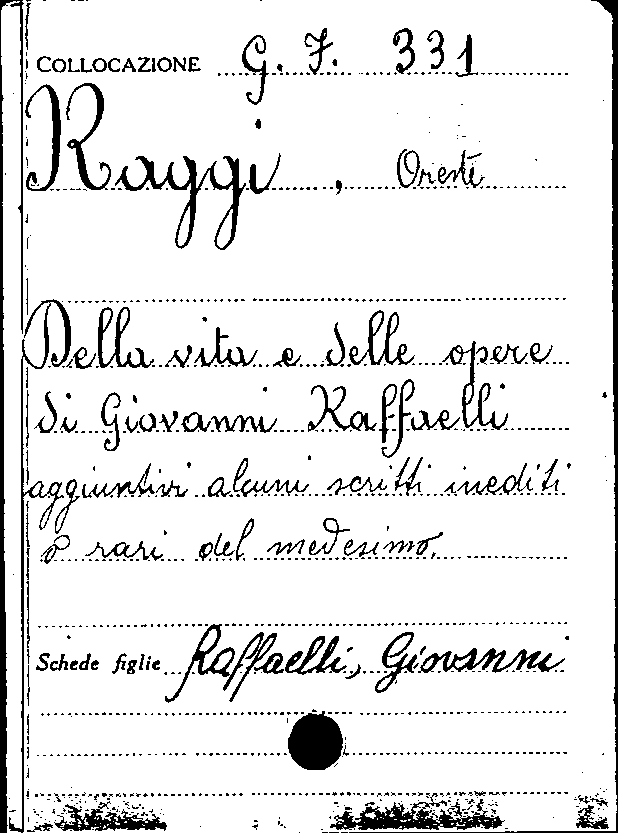 COLLOCAZIONE G. F. 331
Raggi, Oreste
Della vita e delle opere
di Giovanni Raffaelli
aggiuntivi alcuni scritti inediti
o rari del medesimo.
Schede figlie Raffaelli, Giovanni